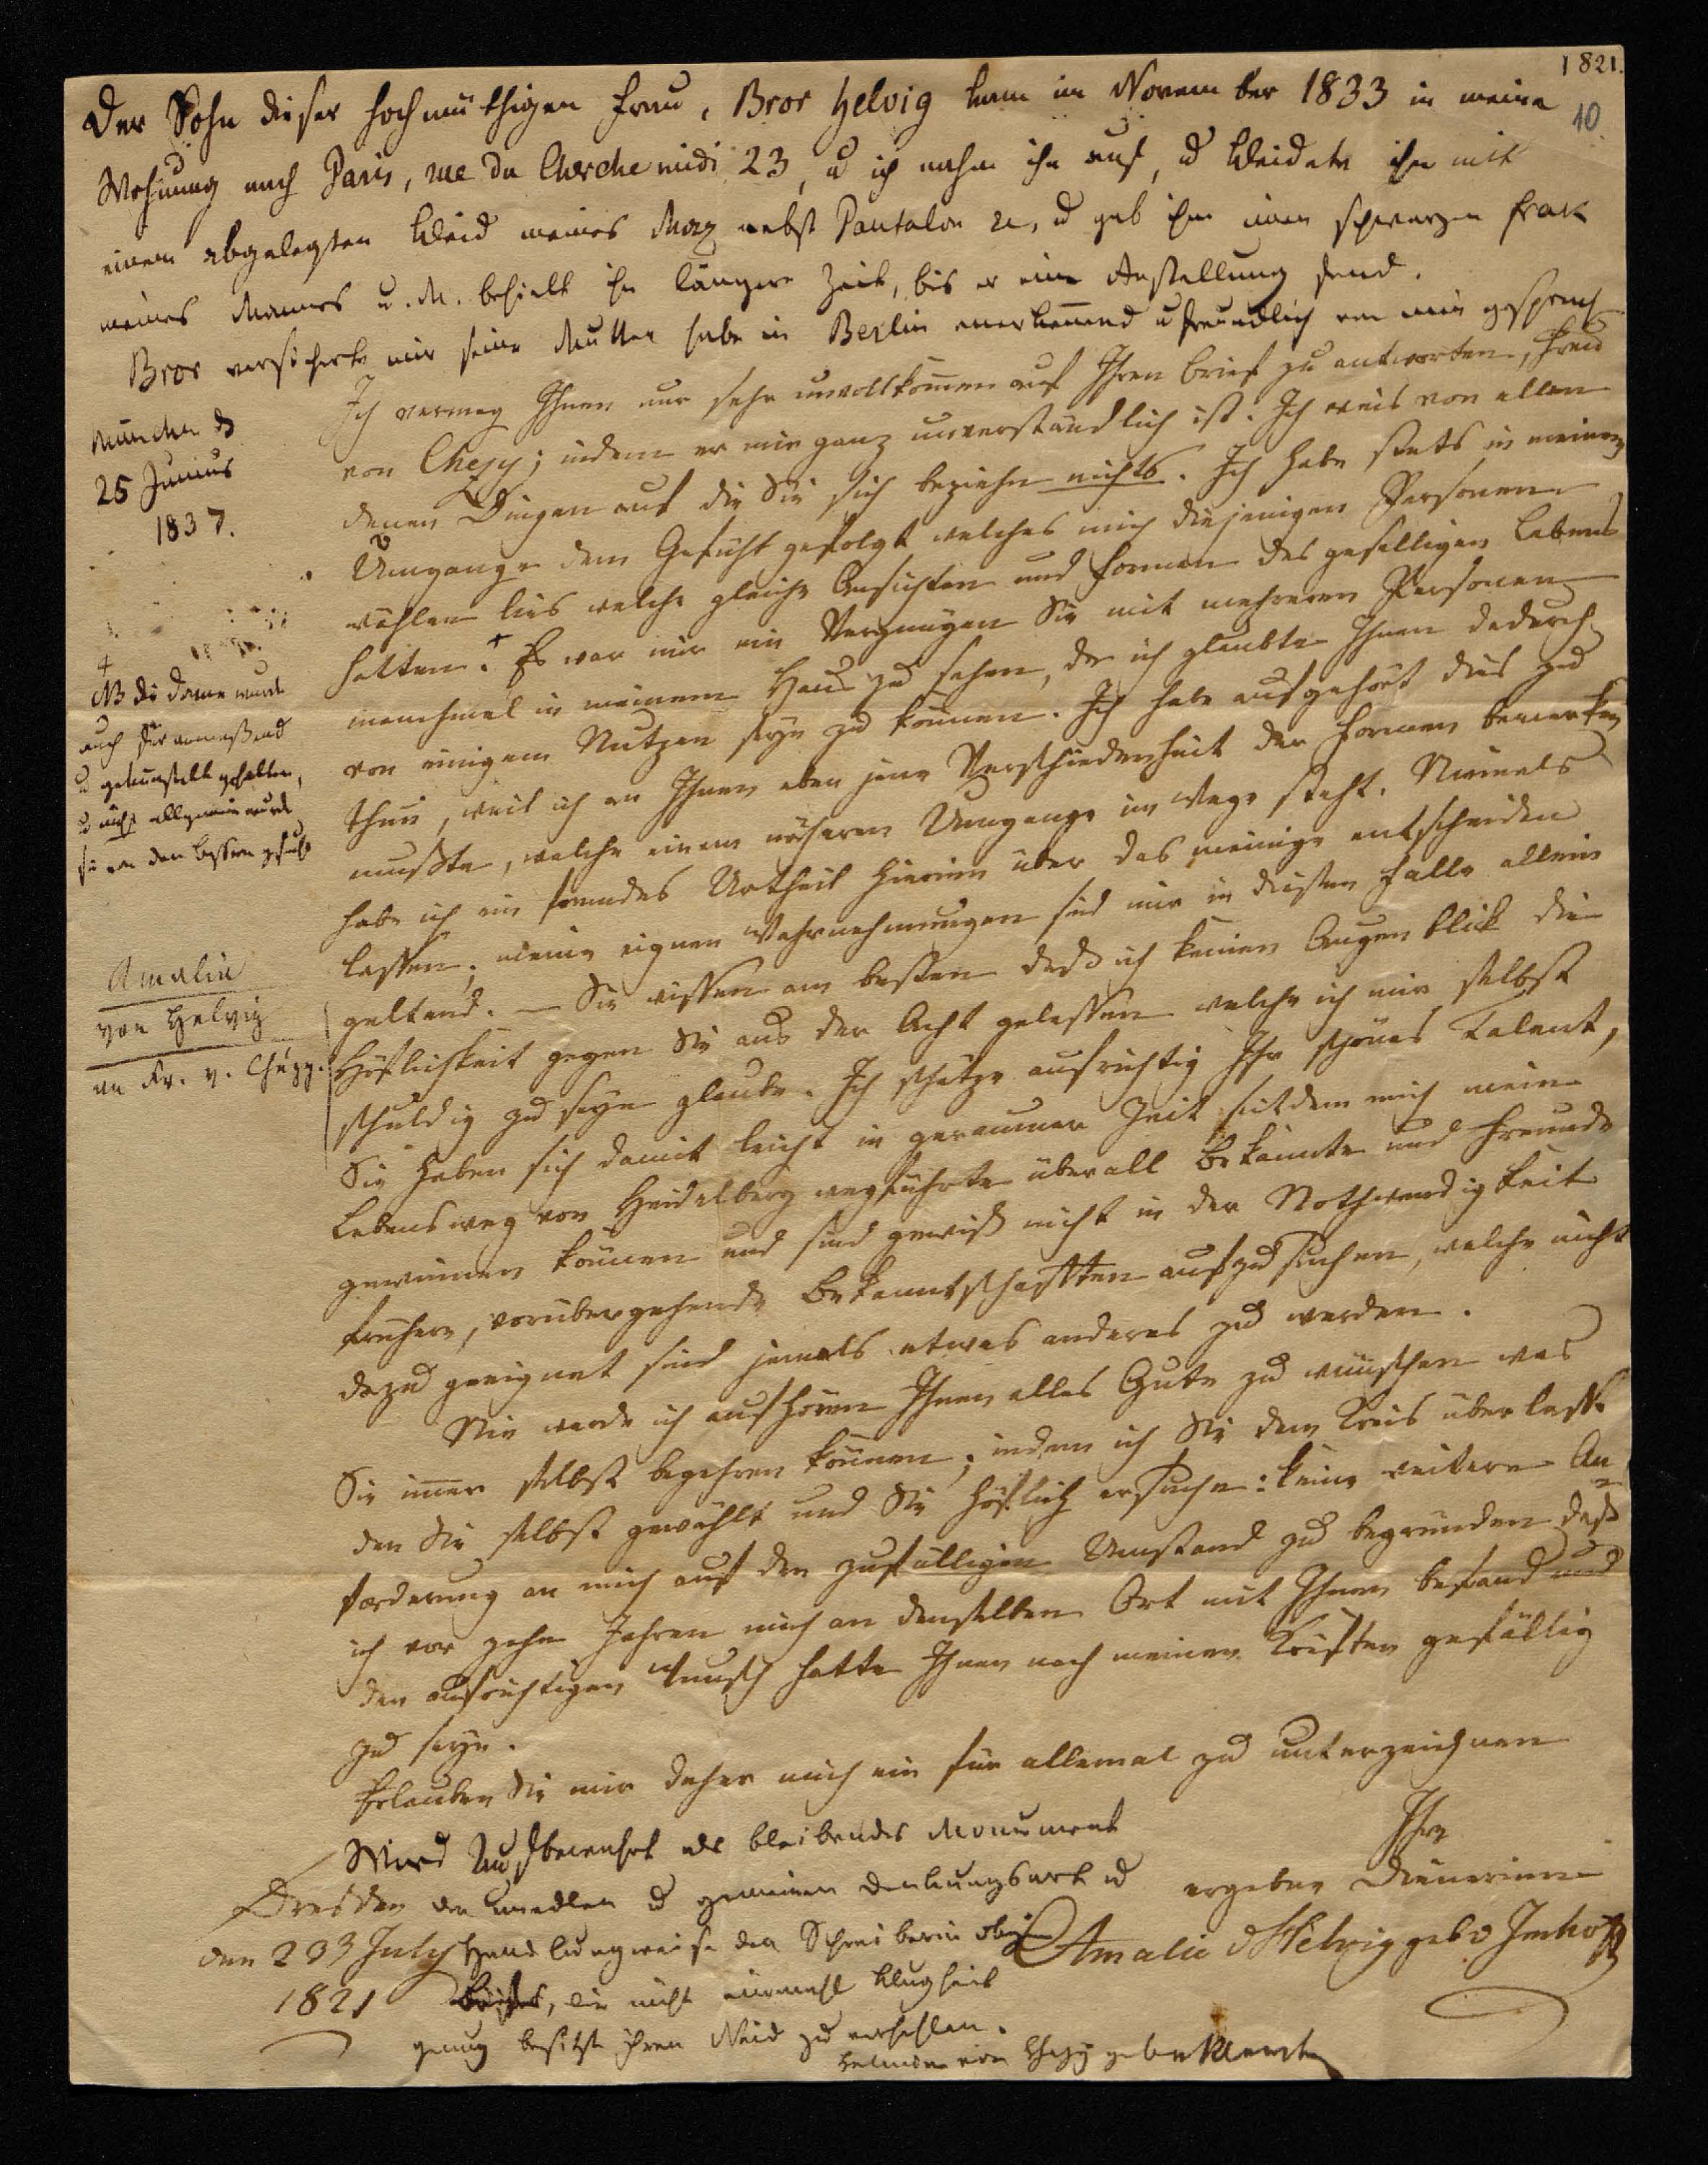 1821.
10
Der Sohn dieser hochmüthigen Frau, Bror Helvig kam im November 1833 in meine
Wohnung nach Paris, rue du Cherche midi 23, u ich nahm ihn auf, u kleidete ihn mit
einem abgelegten Kleid meines Max nebst Pantalon u, u gab ihm einen schwarzen Frak
meines Mannes u. M. behielt ihn längere Zeit, bis er eine Anstellung fand.
Bror versicherte mir seine Mutter habe in Berlin anerkennend u freundlich von mir gesproch
München d
25 Junius
1837.
Ich vermag Ihnen nur sehr unvollkommen auf Ihren Brief zu antworten, Frau
von Chezy; indem er mir ganz unverständlich ist. Ich weis von allen
denen Dingen auf die Sie sich beziehn nichts. Ich habe stets in meinem
Umgange dem Gefühl gefolgt welches mich diejenigen Personen
wählen lies welche gleiche Ansichten und Formen des geselligen Lebens
hatten. + Es war mir ein Vergnügen Sie mit mehreren Personen
manchmal in meinem Haus zu sehen, da ich glaubte Ihnen dadurch
von einigem Nutzen seyn zu können. Ich habe aufgehört dies zu
thun, weil ich an Ihnen eben jene Verschiedenheit der Formen bemerken
mußte, welche einem nähern Umgange im Wege steht. Niemals
habe ich ein fremdes Urtheil hierinn über das meinige entscheiden
lassen; meine eignen Wahrnehmungen sind mir in diesem Falle allein
geltend. — Sie wissen am besten daß ich keinen Augenblick die
Höflichkeit gegen Sie aus der Acht gelassen welche ich mir selbst
schuldig zu seyn glaube. Ich schätze aufrichtig Ihr schönes Talent,
Sie haben sich damit leicht in geraumer Zeit seitdem mich mein
Lebensweg von Heidelberg wegführte überall Bekannte und Freunde
gewinnen können und sind gewiß nicht in der Nothwendigkeit
frühere, vorübergehende Bekanntschaften aufzusuchen, welche nicht
dazu geeignet sind jemals etwas anderes zu werden.
Nie werde ich aufhören Ihnen alles Gute zu wünschen was
Sie immer selbst begehren können; indem ich Sie dem Kreis überlasse
den Sie selbst gewählt und Sie höflich ersuche: keine weitere An
forderung an mich auf den zufälligen Umstand zu begründen daß
ich vor zehn Jahren mich an demselben Ort mit Ihnen befand und
den aufrichtigen Wunsch hatte Ihnen nach meinen Kräften gefällig
zu seyn.
Erlauben Sie mir daher mich ein für allemal zu unterzeichnen
Ihre
ergebne Dienerinn
Amalie v Helvig geb v Imhoff
Dresden
den 23 July
1821
+
NB die Dame wurde
auch für anmaßend
u gekünstelt gehalten,
u nicht allgemein wurde
sie von den Bessern gesucht
Amalie
von Helvig
an Fr. v. Chézy.
Wird Aufbewahrt als bleibendes Monument
der unedlen u gemeinen Denkungsart u
Handlungweise der Schreiberin obigen
Briefes, die nicht einmahl Klugheit
genug besitzt ihren Neid zu verhehlen.
Helmina von Chezy geborne Klencke